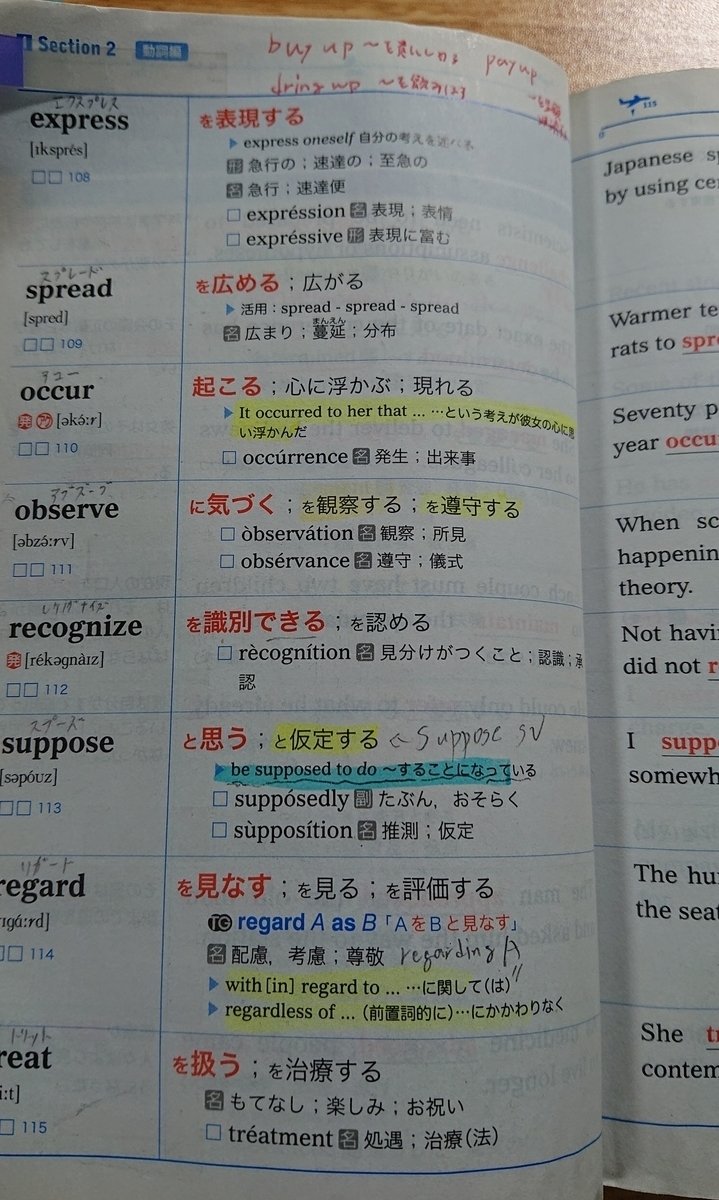 Section 2 動詞編
buy up ～を買いしめる pay up
～を飲みほす
エクスプレス
express
[ɪksprés]
□□ 108
を表現する
▶ express oneself 自分の考えを述べる
形 急行の；速達の；至急の
名 急行；速達便
□ expréssion 名 表現；表情
□ expréssive 形 表現に富む
スプレード
spread
[spred]
□□ 109
を広める；広がる
▶ 活用：spread - spread - spread
まんえん
名 広まり；蔓延；分布
occur
発 ア [əkə́ːr]
□□ 110
起こる；心に浮かぶ；現れる
▶ It occurred to her that ... …という考えが彼女の心に思
い浮かんだ
□ occúrrence 名 発生；出来事
observe
[əbzə́ːrv]
□□ 111
に気づく；を観察する；を遵守する
□ òbservátion 名 観察；所見
□ obsérvance 名 遵守；儀式
レケグナイズ
recognize
発 [rékəgnàɪz]
□□ 112
を識別できる；を認める
□ rècognítion 名 見分けがつくこと；認識；承
認
スポーズ
suppose
[səpóuz]
□□ 113
と思う；と仮定する ← Suppose SV
▶ be supposed to do ～することになっている
□ suppósedly 副 たぶん，おそらく
□ sùpposítion 名 推測；仮定
リガード
regard
rɪgáːrd]
□ 114
を見なす；を見る；を評価する
TG regard A as B「AをBと見なす」
名 配慮，考慮；尊敬 regarding A
▶ with [in] regard to ... …に関して(は)
▶ regardless of ... （前置詞的に）…にかかわりなく
トリット
reat
iːt]
□ 115
を扱う；を治療する
名 もてなし；楽しみ；お祝い
□ tréatment 名 処遇；治療(法)
115
0
Japanese sp
by using cer
Warmer te
rats to spre
Seventy p
year occu
When sc
happenin
theory.
Not havi
did not r
I suppo
somewh
The hu
the seat
She tr
contem